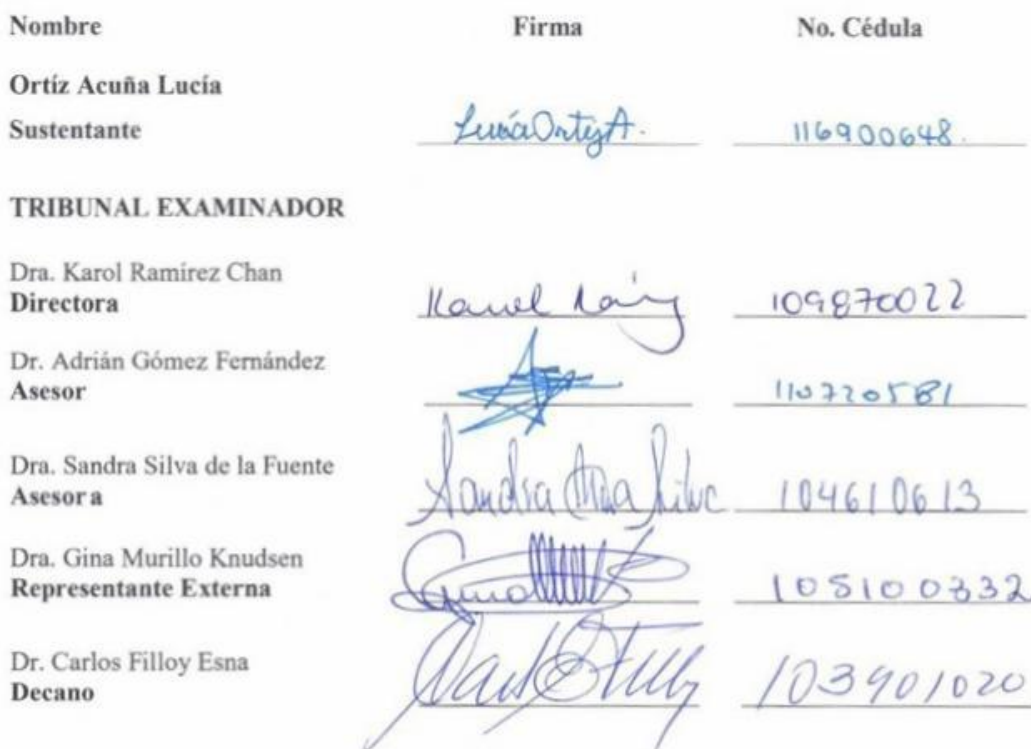 Nombre Firma No. Cédula
Ortíz Acuña Lucía
Sustentante Lucía Ortiz A. 116900648.
TRIBUNAL EXAMINADOR
Dra. Karol Ramírez Chan
Directora Karol 109870022
Dr. Adrián Gómez Fernández
Asesor 110720581
Dra. Sandra Silva de la Fuente
Asesora Sandra Silva 104610613
Dra. Gina Murillo Knudsen
Representante Externa 105100332
Dr. Carlos Filloy Esna
Decano 103901020